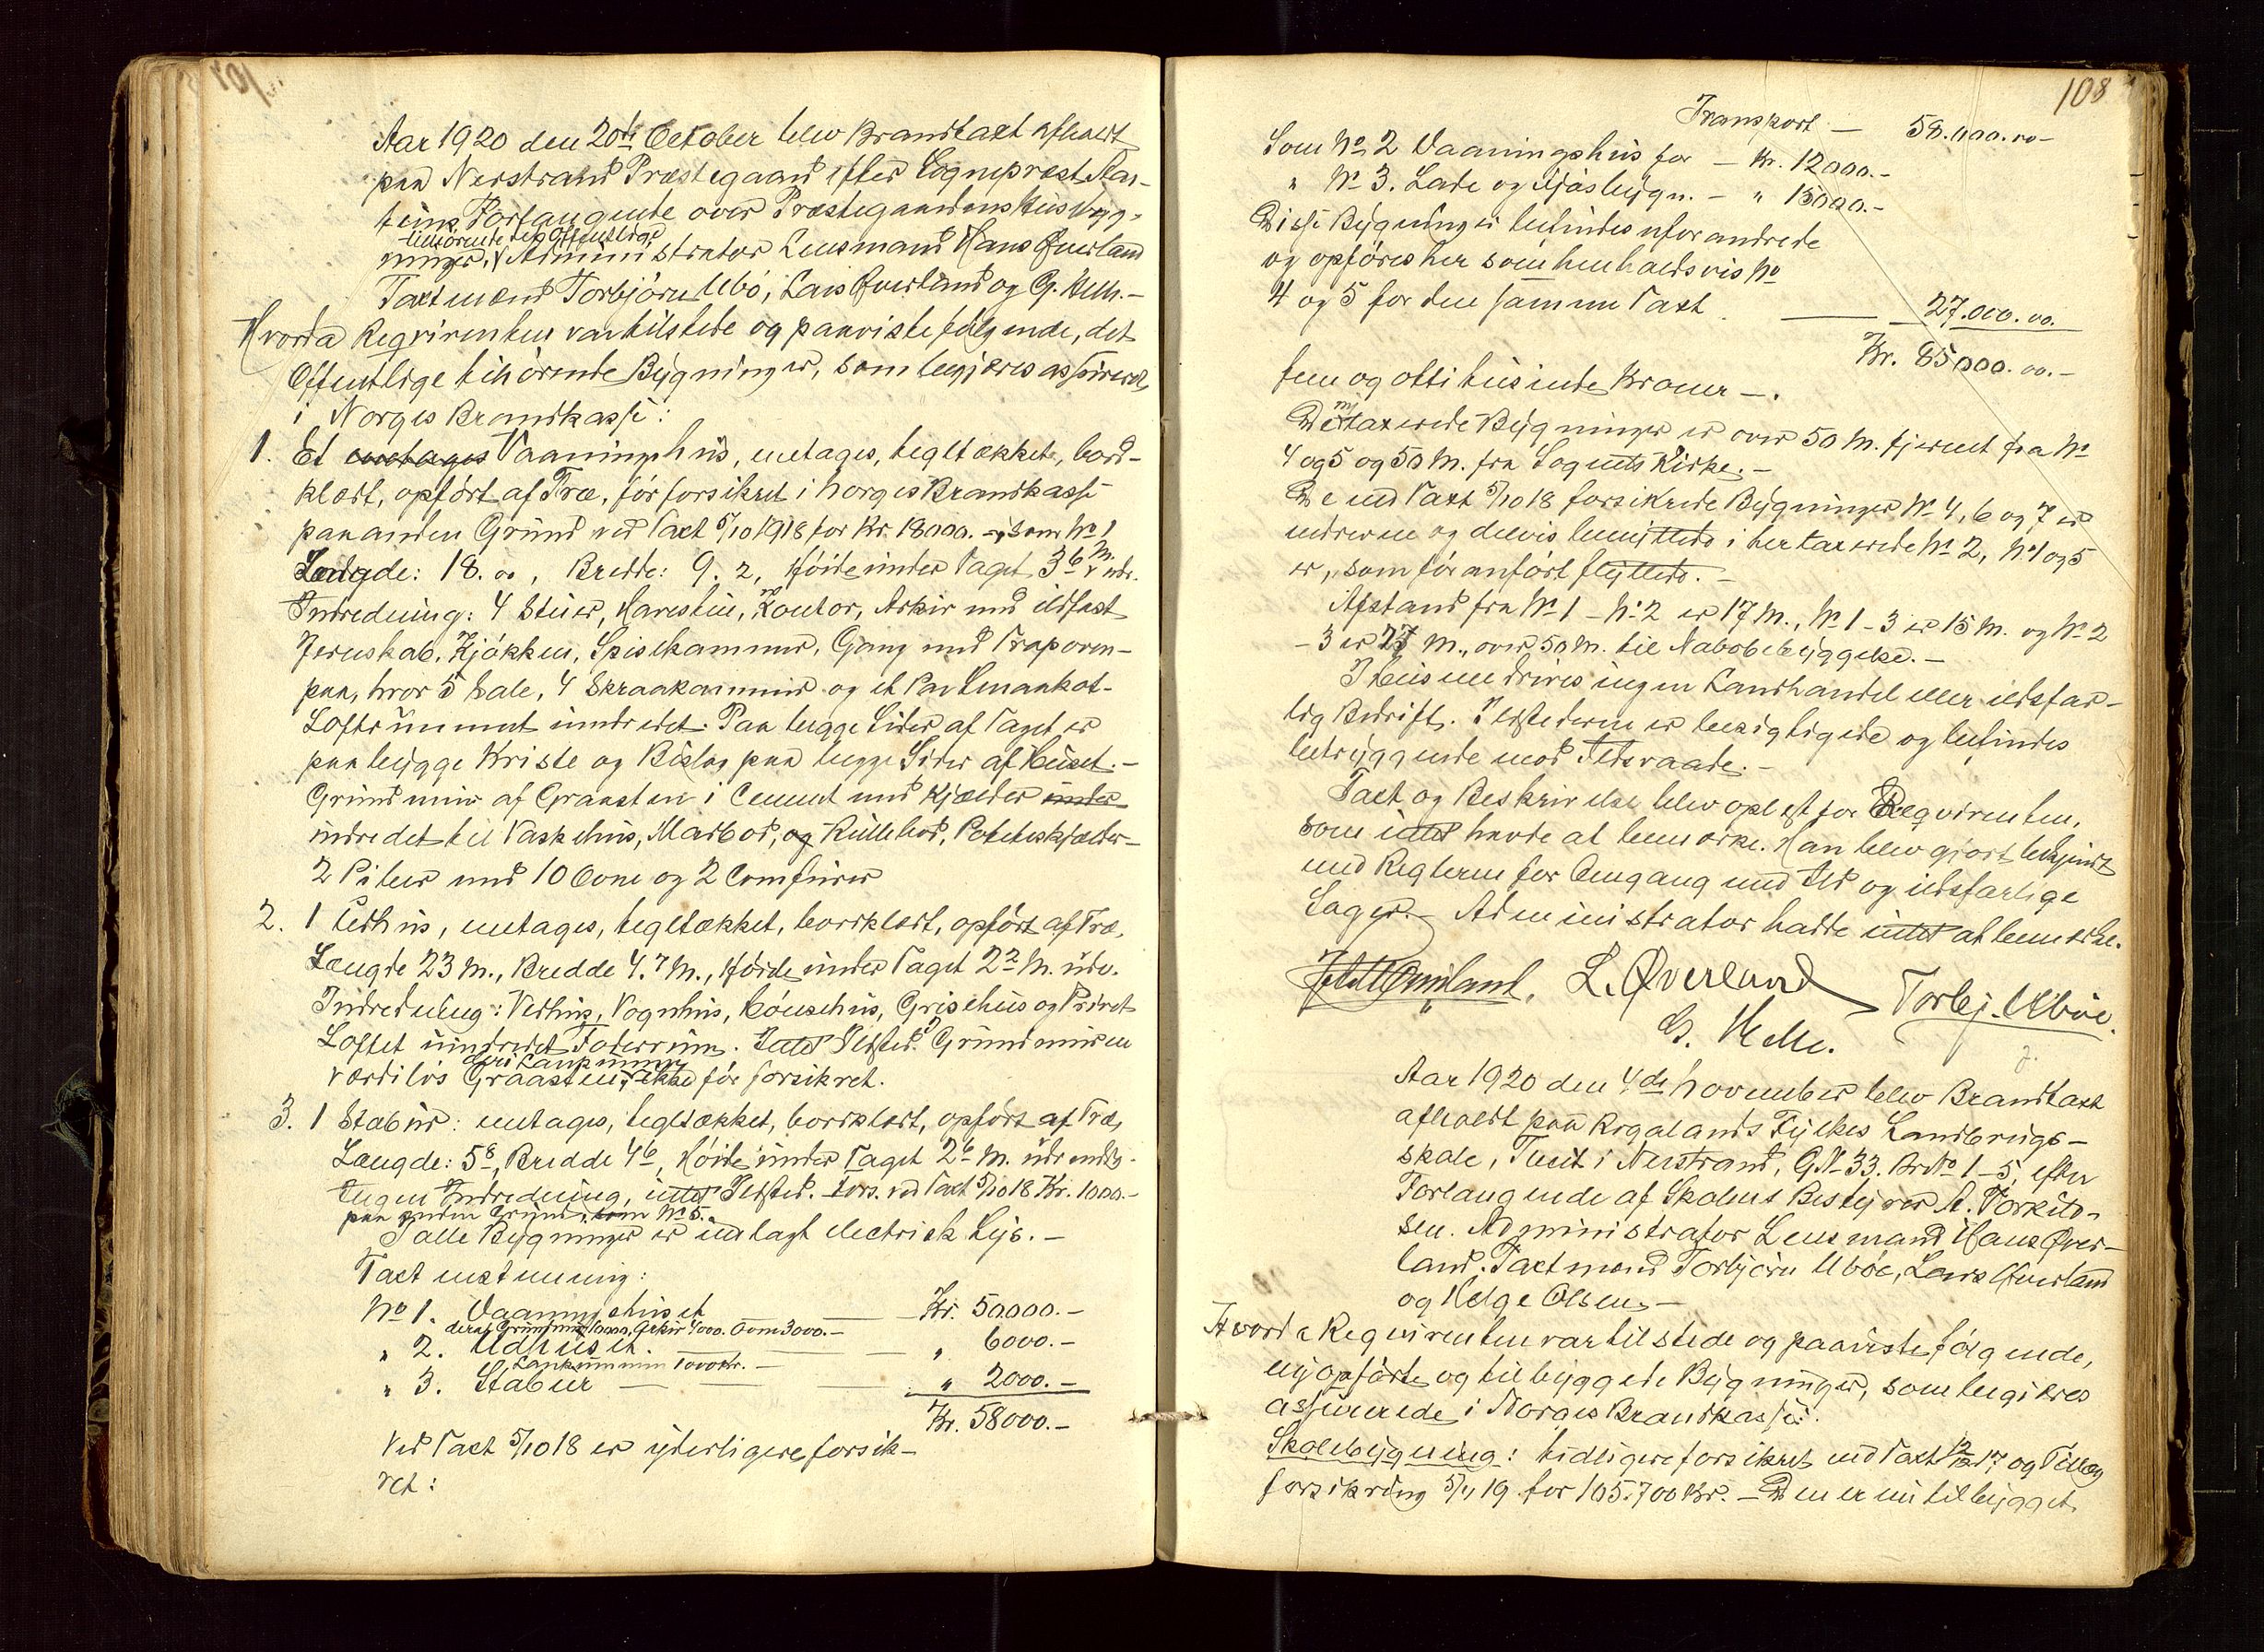 Aar 1920 den 20de October blev Brandtaxt afholdt
paa Nerstrand Præstegaard efter Sogneprest Aar-
teins Forlangende over Præstegaardens Husbyg-
tilhörende det Offentlige
ninger, Administrator Lensmand Hans Øverland
Taxtmænd Torbjörn Ubö, Lars Øverland og G. Helle.-
Hvorda Reqvirenten var tilstede og paaviste følgende, det
Offentlige tihörende Bygninger, som begjæres assureret
i Norges Brandkasse:
1. Et Vaaningshus, uetages, tegltækket, bord-
klædt, opført af Træ, för forsikret i Norges Brandkasse
paa anden Grund ved Taxt 5/10 1918 for Kr. 18000.-, som No 1
Længde: 18.00, Bredde: 9.2, Höide under Taget 36 M. udv.
Indredning: 4 Stuer, Havestue, Kontor, Arkiv med ildfast
Jernskab, Kjökken, Spisekammer, Gang med Trap oven-
paa, hvor 5 Sale, 4 Skraakammer og et
Loftrummet uindredet. Paa begge Sider af Taget er
paabygge Kviste og Bislag paa begge Sider af Huset.-
Grundmur af Graasten i Cement med Kjælder under
indredet til Vaskehus, Madbod, og Rullebod, Poteteskjælder-
2 Piber med 10 Ovne og 2 Comfurer
2. 1 Udhus, uetages, tegltækket, bordklædt, opfört af Træ,
Længde 23 M., Bredde 4.7 M., Höide under Taget 22 M. udv.
Indredning: Vedhus, Vognhus, Hönsehus, Grisehus og Privet
Loftet uindredet Foderrum. Intet Ildsted. Grundmuren
værdilös Graasten, ikke för forsikret.
3. 1 Stabur: uetages, tegltækket, bordklædt, opfört af Træ,
Længde: 58, Bredde 46, Höide under Taget 26 M. udvendig.
Ingen Indredning, intet Ildsted. Fors. ved Taxt 5/10 18 Kr. 1000.-
paa anden Grund, som No 5.
I alle Bygninger er indlagt electrisk Lys.-
Taxt ansættning:
No 1. Vaaningshuset — Kr. 50000.-
deraf Grundmur 10000, Arkiv 4000. Ovne 3000.-
„ 2. Udhuset. — „ 6000.-
1000 Kr. -
„ 3. Stabur — „ 2000.-
Kr. 58000.-
Ved Taxt 5/10 18 er yderligere forsik-
ret:
108
Transport — 58.000.00-
Som No 2 Vaaningshus for — Kr. 12000.-
„ No 3. Lade og Fjösbygn. — „ 15000.-
Disse Bygninger befindes uforandrede
og opføres her som henholdsvis No
4 og 5 for den samme Taxt — 27.000.00.
Kr. 85000.00.-
fem og otti tusinde Kroner —.
De nytaxerede Bygninger er over 50 M. fjernet fra No
4 og 5 og 50 M. fra Sognets Kirke.-
De ved Taxt 5/10 18 forsikrede Bygninger No 4, 6 og 7 er
nedrevne og delvis benyttede i her taxerede No 2, No 1 og 5
er, som för anført flyttede.-
Afstand fra No 1 - No 2 er 17 M., No 1 - 3 er 15 M. og No 2
- 3 er 27 M., over 50 M. til Nabobebyggelse.-
I Husene drives ingen Landhandel eller ildsfar-
lig Bedrift. Ildstederne er besigtigede og befindes
betryggende mod Ildsvaade.-
Taxt og Beskrivelse blev oplæst for Reqvirenten,
som intet havde at bemærke. Han blev gjort bekjendt
med Reglerne for Omgang med Ild og ildsfarlige
Sager.- Administrator hadde intet at bemærke.
L. Øverland Torbj. Ubøe.
G. Helle.
Aar 1920 den 4de November blev Brandtaxt
afholdt paa Rogalands Fylkes Landbrugs-
skole, Tveit i Nerstrand, G.No 33. Br.No 1-5, efter
Forlangende af Skolens Bestyrer A. Torkild-
sen. Administrator Lensmand Hans Øver-
land. Taxtmænd Torbjørn Ubøe, Lars Øverland
og Helge Olsen.-
Hvorda Reqvirenten var tilstede og paaviste følgende,
nyopførte og tilbyggede Bygninger, som begjæres
assurerede i Norges Brandkasse:
Skolebygning: tidligere forsikret ved Taxt 12/12 17 og Tillæg
forsikring 5/11 19 for 105.700 Kr. — Den er nu tilbygget